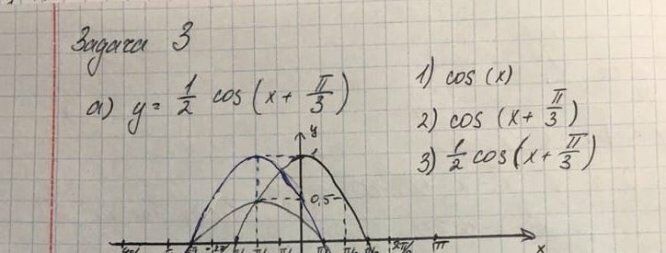 Задача 3
а) y = 1/2 cos (x + π/3)
1) cos (x)
2) cos (x + π/3)
3) 1/2 cos (x + π/3)
y
1
0,5
π
x